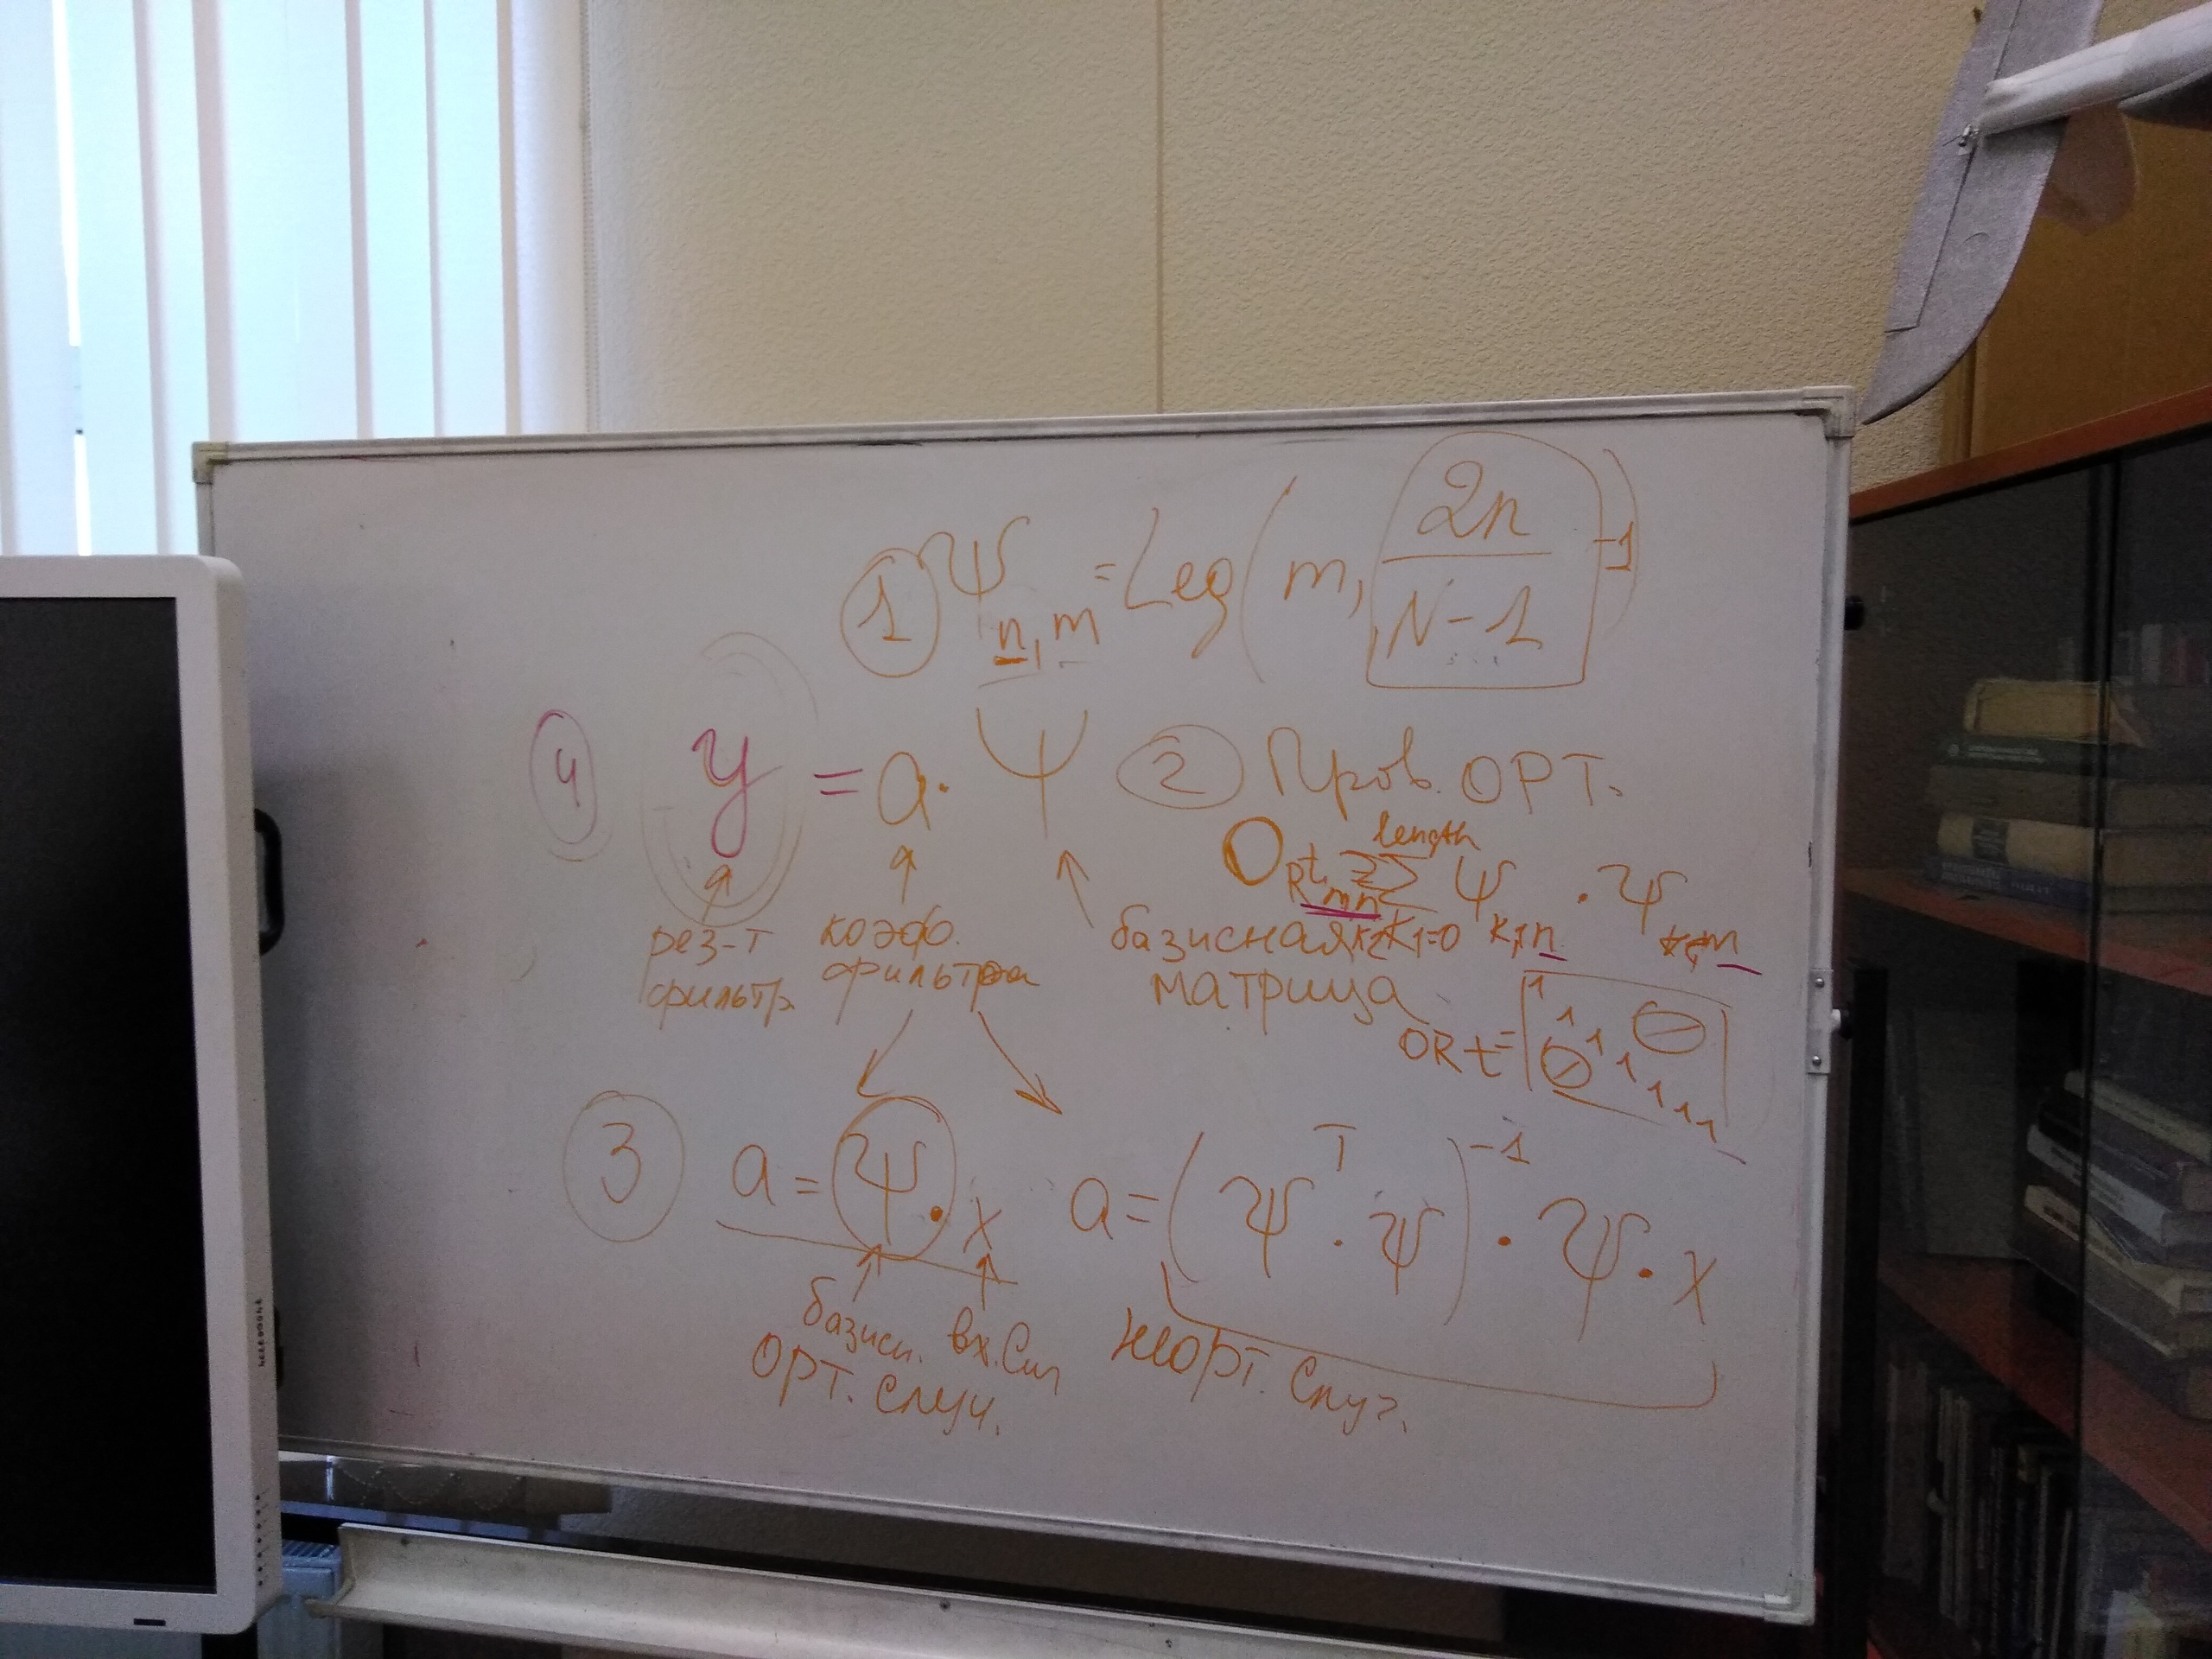 ① Ψ n,m = Leg(m, 2n/(N-1) -1)
④ y = a · Ψ
рез-т фильтр.
коэф. фильтра
базисная матрица
② Пров. ОРТ.
ORt m,n = length Σ k=0 Ψ k,n · Ψ k,m
ORt = [1 1 1 1 1 1 1 0 0]
③ a = Ψ · x
базисн. вх. Сиг
ОРТ. случ.
a = (Ψ^T · Ψ)^-1 · Ψ · x
неорт. случ.